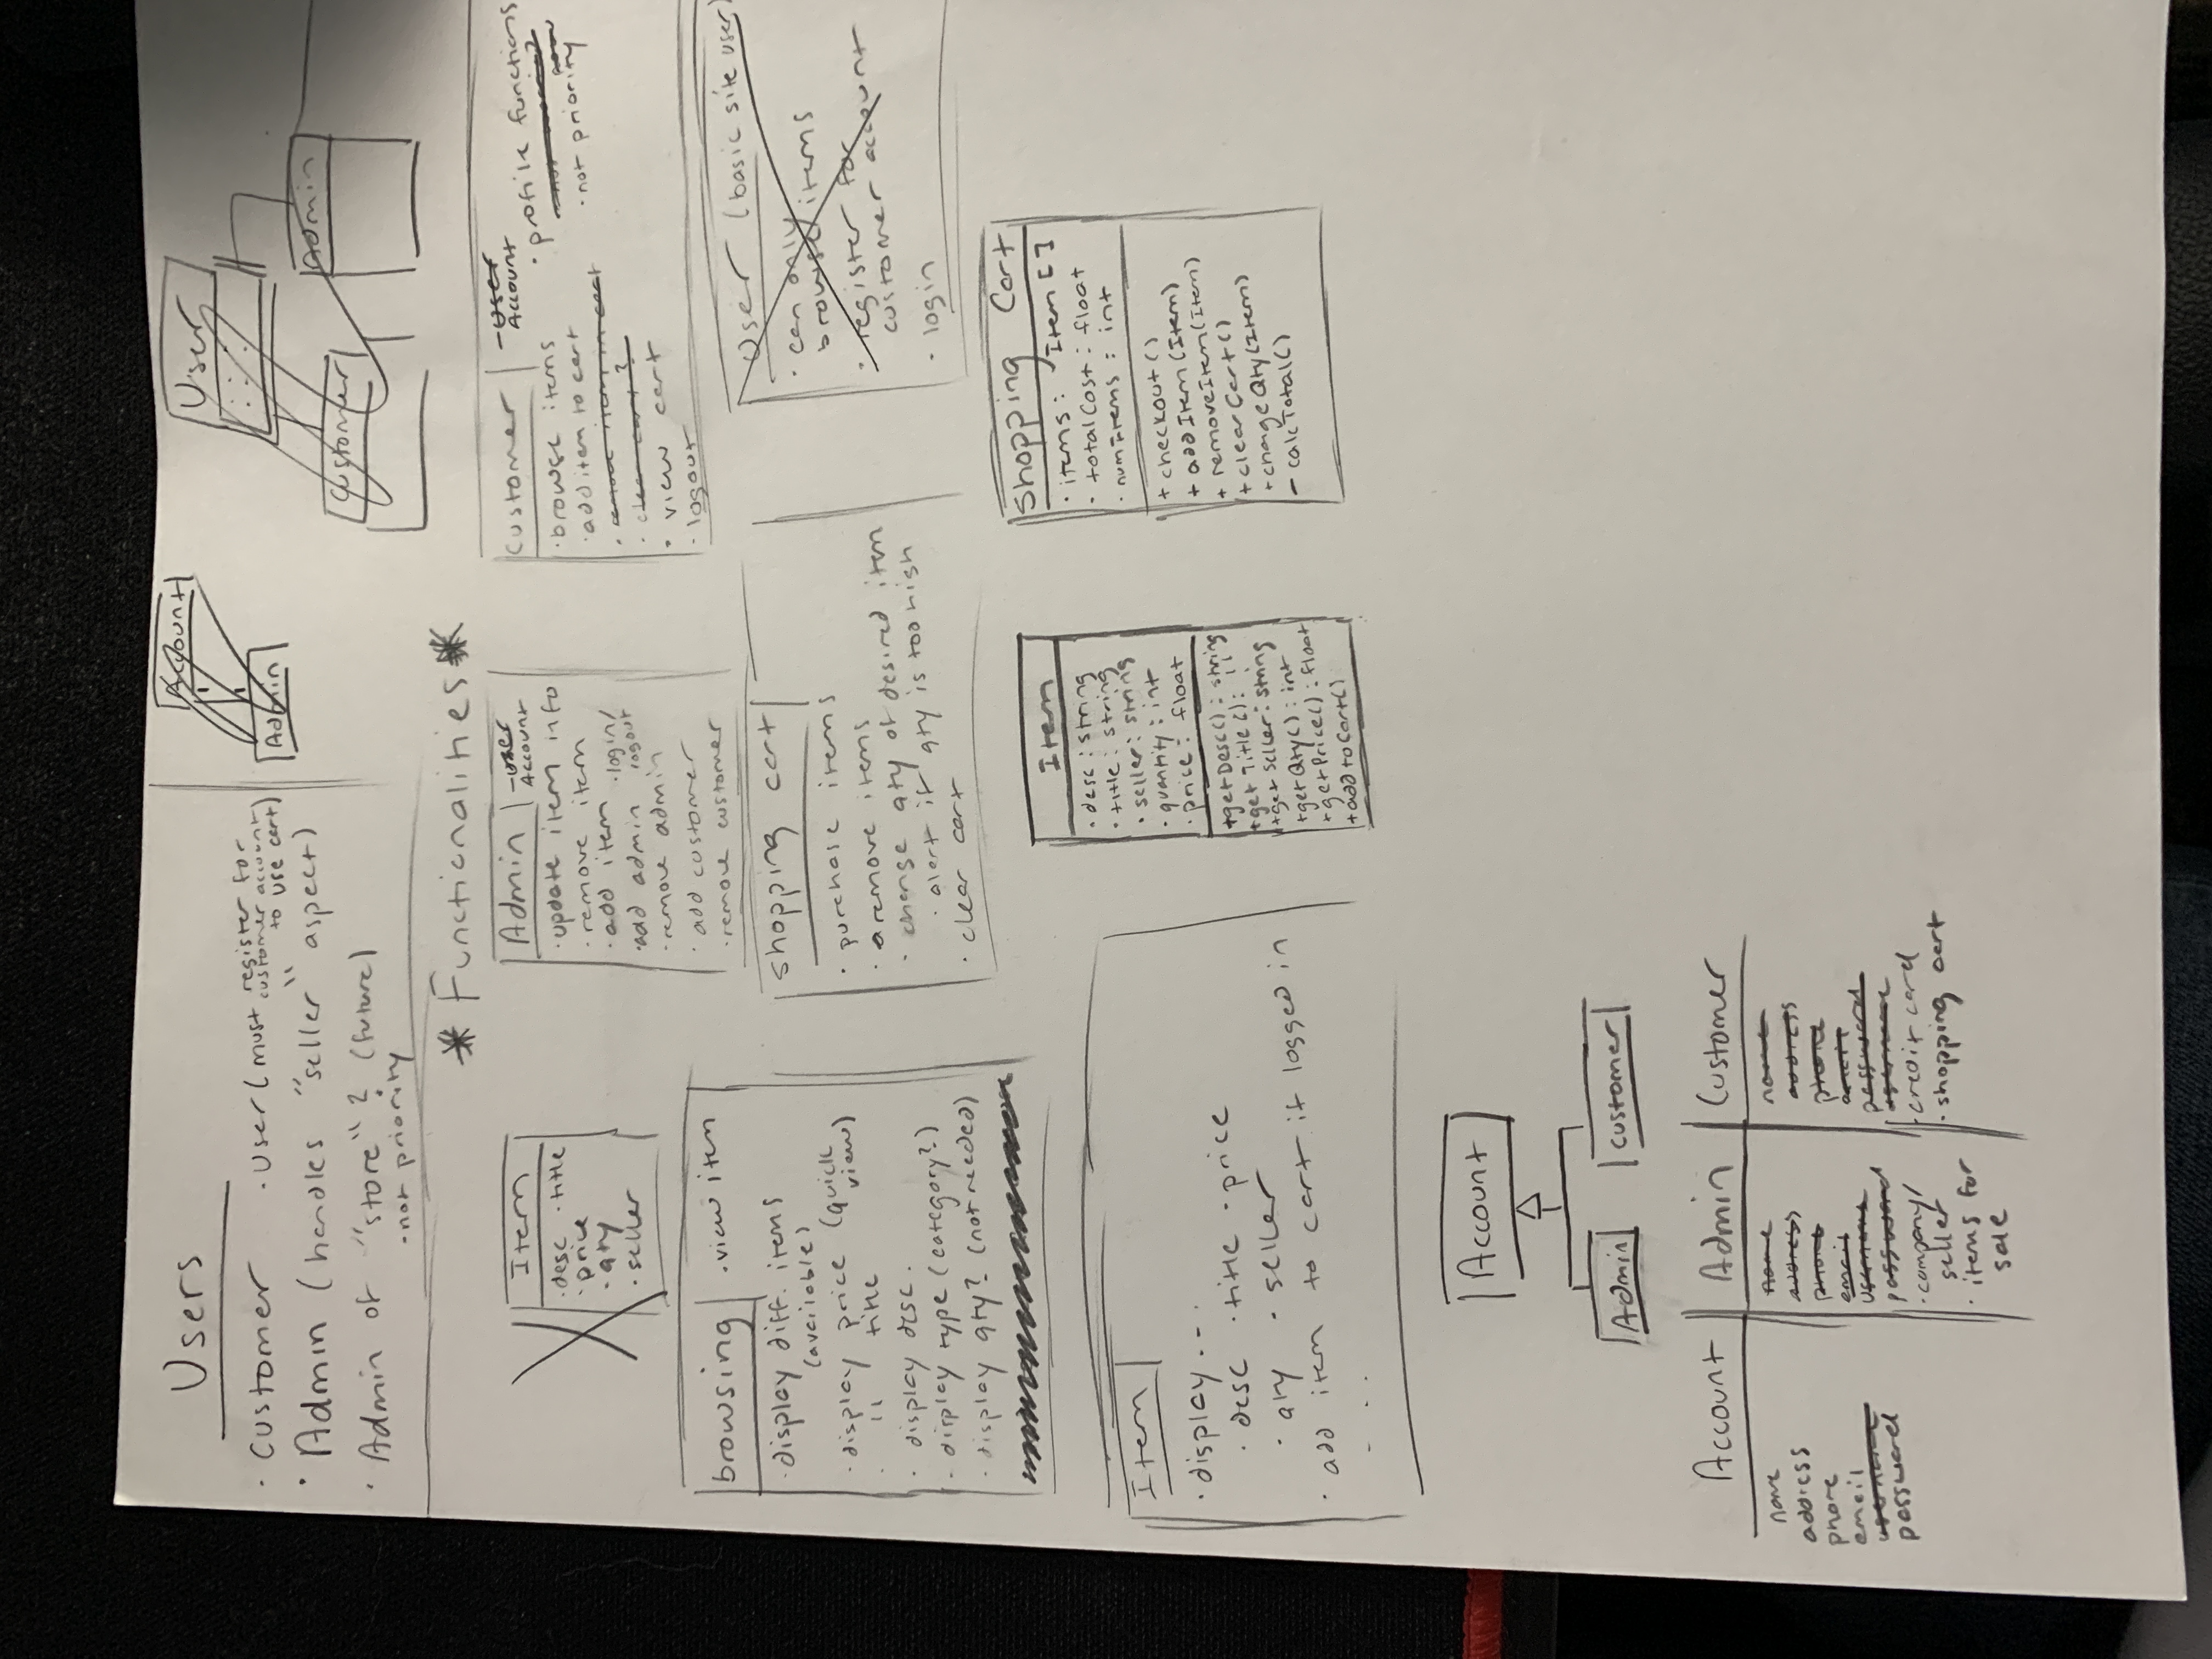 Users
· Customer · User (must register for customer account to use cart)
· Admin (handles "seller" aspect)
· Admin of "store"? (future)
· not priority
Account
Admin
User
Customer
Admin
* Functionalities *
Item
· desc · title
· price
· qty
· seller
Admin
- User
Account
· update item info
· remove item
· add item
· login/
logout
· add admin
· remove admin
· add customer
· remove customer
Customer
- User
Account
· browse items
· add item to cart
· remove item in cart
· clear cart?
· view cart
· logout
· profile functions
· not priority
browsing
· view item
· display diff. items
(available)
· display price (quick view)
· " title
· display desc.
· display type (category?)
· display qty? (not needed)
shopping cart
· purchase items
· remove items
· change qty of desired item
· alert if qty is too high
· clear cart
User (basic site user)
· can only
browse items
· register for
customer account
· login
Item
· display ...
· desc · title · price
· qty · seller
· add item to cart if logged in
- . .
Item
· desc : string
· title : string
· seller : string
· quantity : int
· price : float
+getDesc() : string
+get Title() : "
+get Seller : string
+getQty() : int
+getPrice() : float
+add to Cart()
Shopping Cart
· items : Item []
· totalCost : float
· numItems : int
+ checkout()
+ addItem(Item)
+ removeItem(Item)
+ clearCart()
+ changeQty(Item)
- calcTotal()
Account
Admin
Customer
Account
name
address
phone
email
username
password
Admin
name
address
phone
email
username
password
· company/
seller
· items for
sale
Customer
name
address
phone
email
password
username
· credit card
· shopping cart